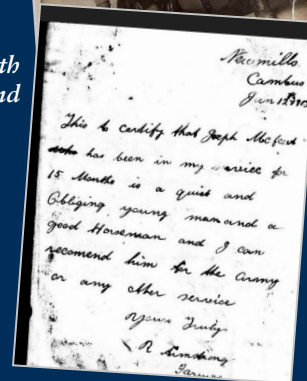 th
nd
Newmills
Cambus
This to certify that Joseph
has been in my service for
15 Months is a quiet and
Obliging young man and a
good Horseman and I can
recomend him for the Army
or any other service
Yours Truly
R Armstrong
Farmer